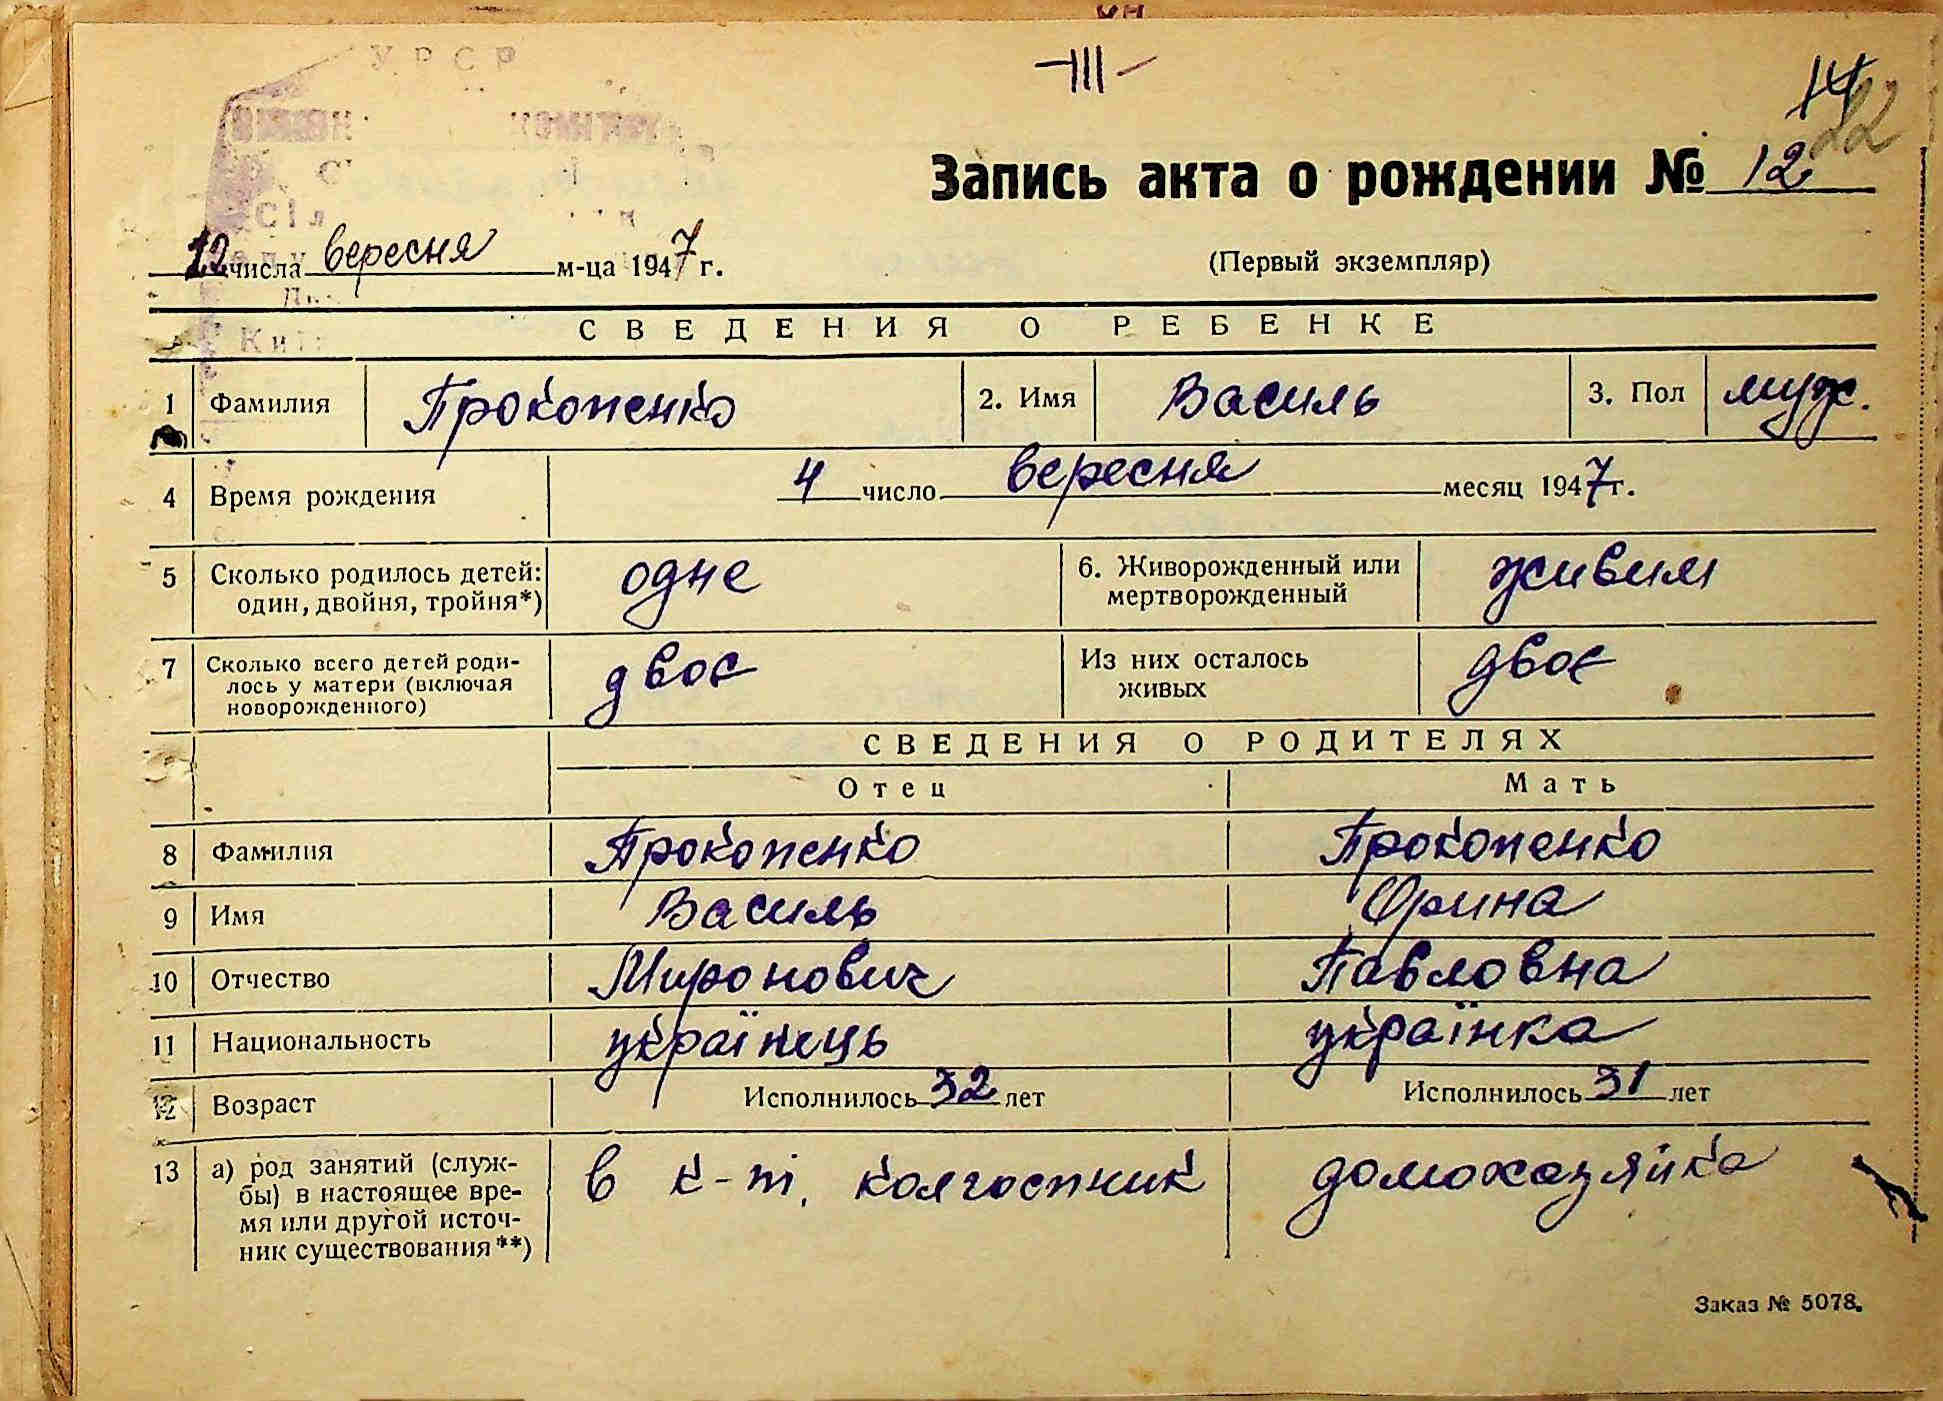 УРСР
-III-
14
22
Запись акта о рождении № 12
12 числа вересня м-ца 1947 г.
(Первый экземпляр)
СВЕДЕНИЯ О РЕБЕНКЕ
1 Фамилия Прокопенко 2. Имя Василь 3. Пол муж.
4 Время рождения 4 число вересня месяц 1947 г.
5 Сколько родилось детей: один, двойня, тройня*) одне 6. Живорожденный или мертворожденный живим
7 Сколько всего детей роди-
лось у матери (включая
новорожденного) двоє Из них осталось живых двоє
СВЕДЕНИЯ О РОДИТЕЛЯХ
Отец Мать
8 Фамилия Прокопенко Прокопенко
9 Имя Василь Орина
10 Отчество Миронович Павловна
11 Национальность українець українка
12 Возраст Исполнилось 32 лет Исполнилось 31 лет
13 а) род занятий (служ-
бы) в настоящее вре-
мя или другой источ-
ник существования**) в к-ті, колгоспник домохазяйка
Заказ № 5078.